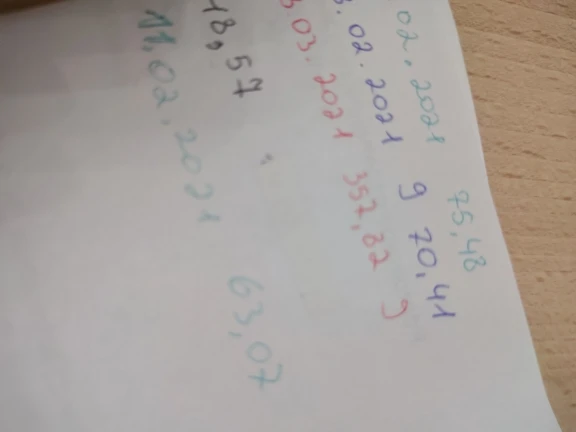 02.2021 75,48
3.02.2021 9 70,41
3.03.2021 357,82 9
18,57
11.02.2021 63,07